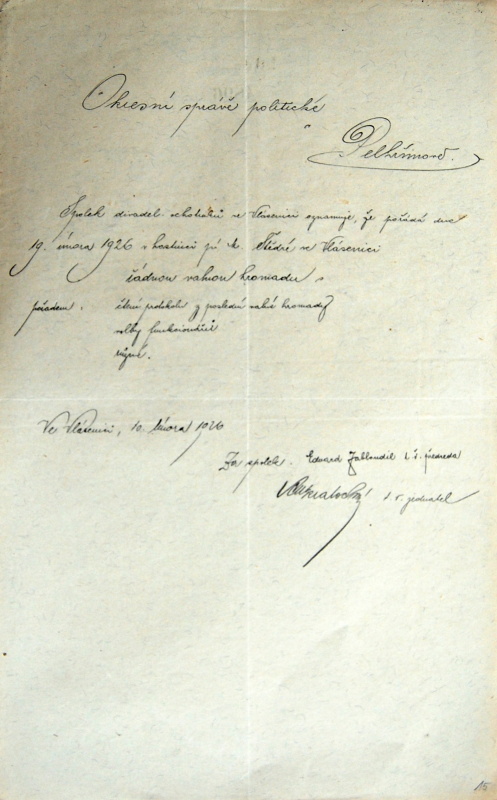 Okresní správě politické
v
Pelhřimově.
Spolek divadel. ochotníků ve Vlásenici oznamuje, že pořádá dne
19. února 1926 v hostinci pí M. Štědré ve Vlásenici
řádnou valnou hromadu s
pořadem: čtení protokolu z poslední valné hromady
volby funkcionářů
různé.
Ve Vlásenici, 10. února 1926
Za spolek: Edvard Zabloudil t. č. předseda
t. č. jednatel
15